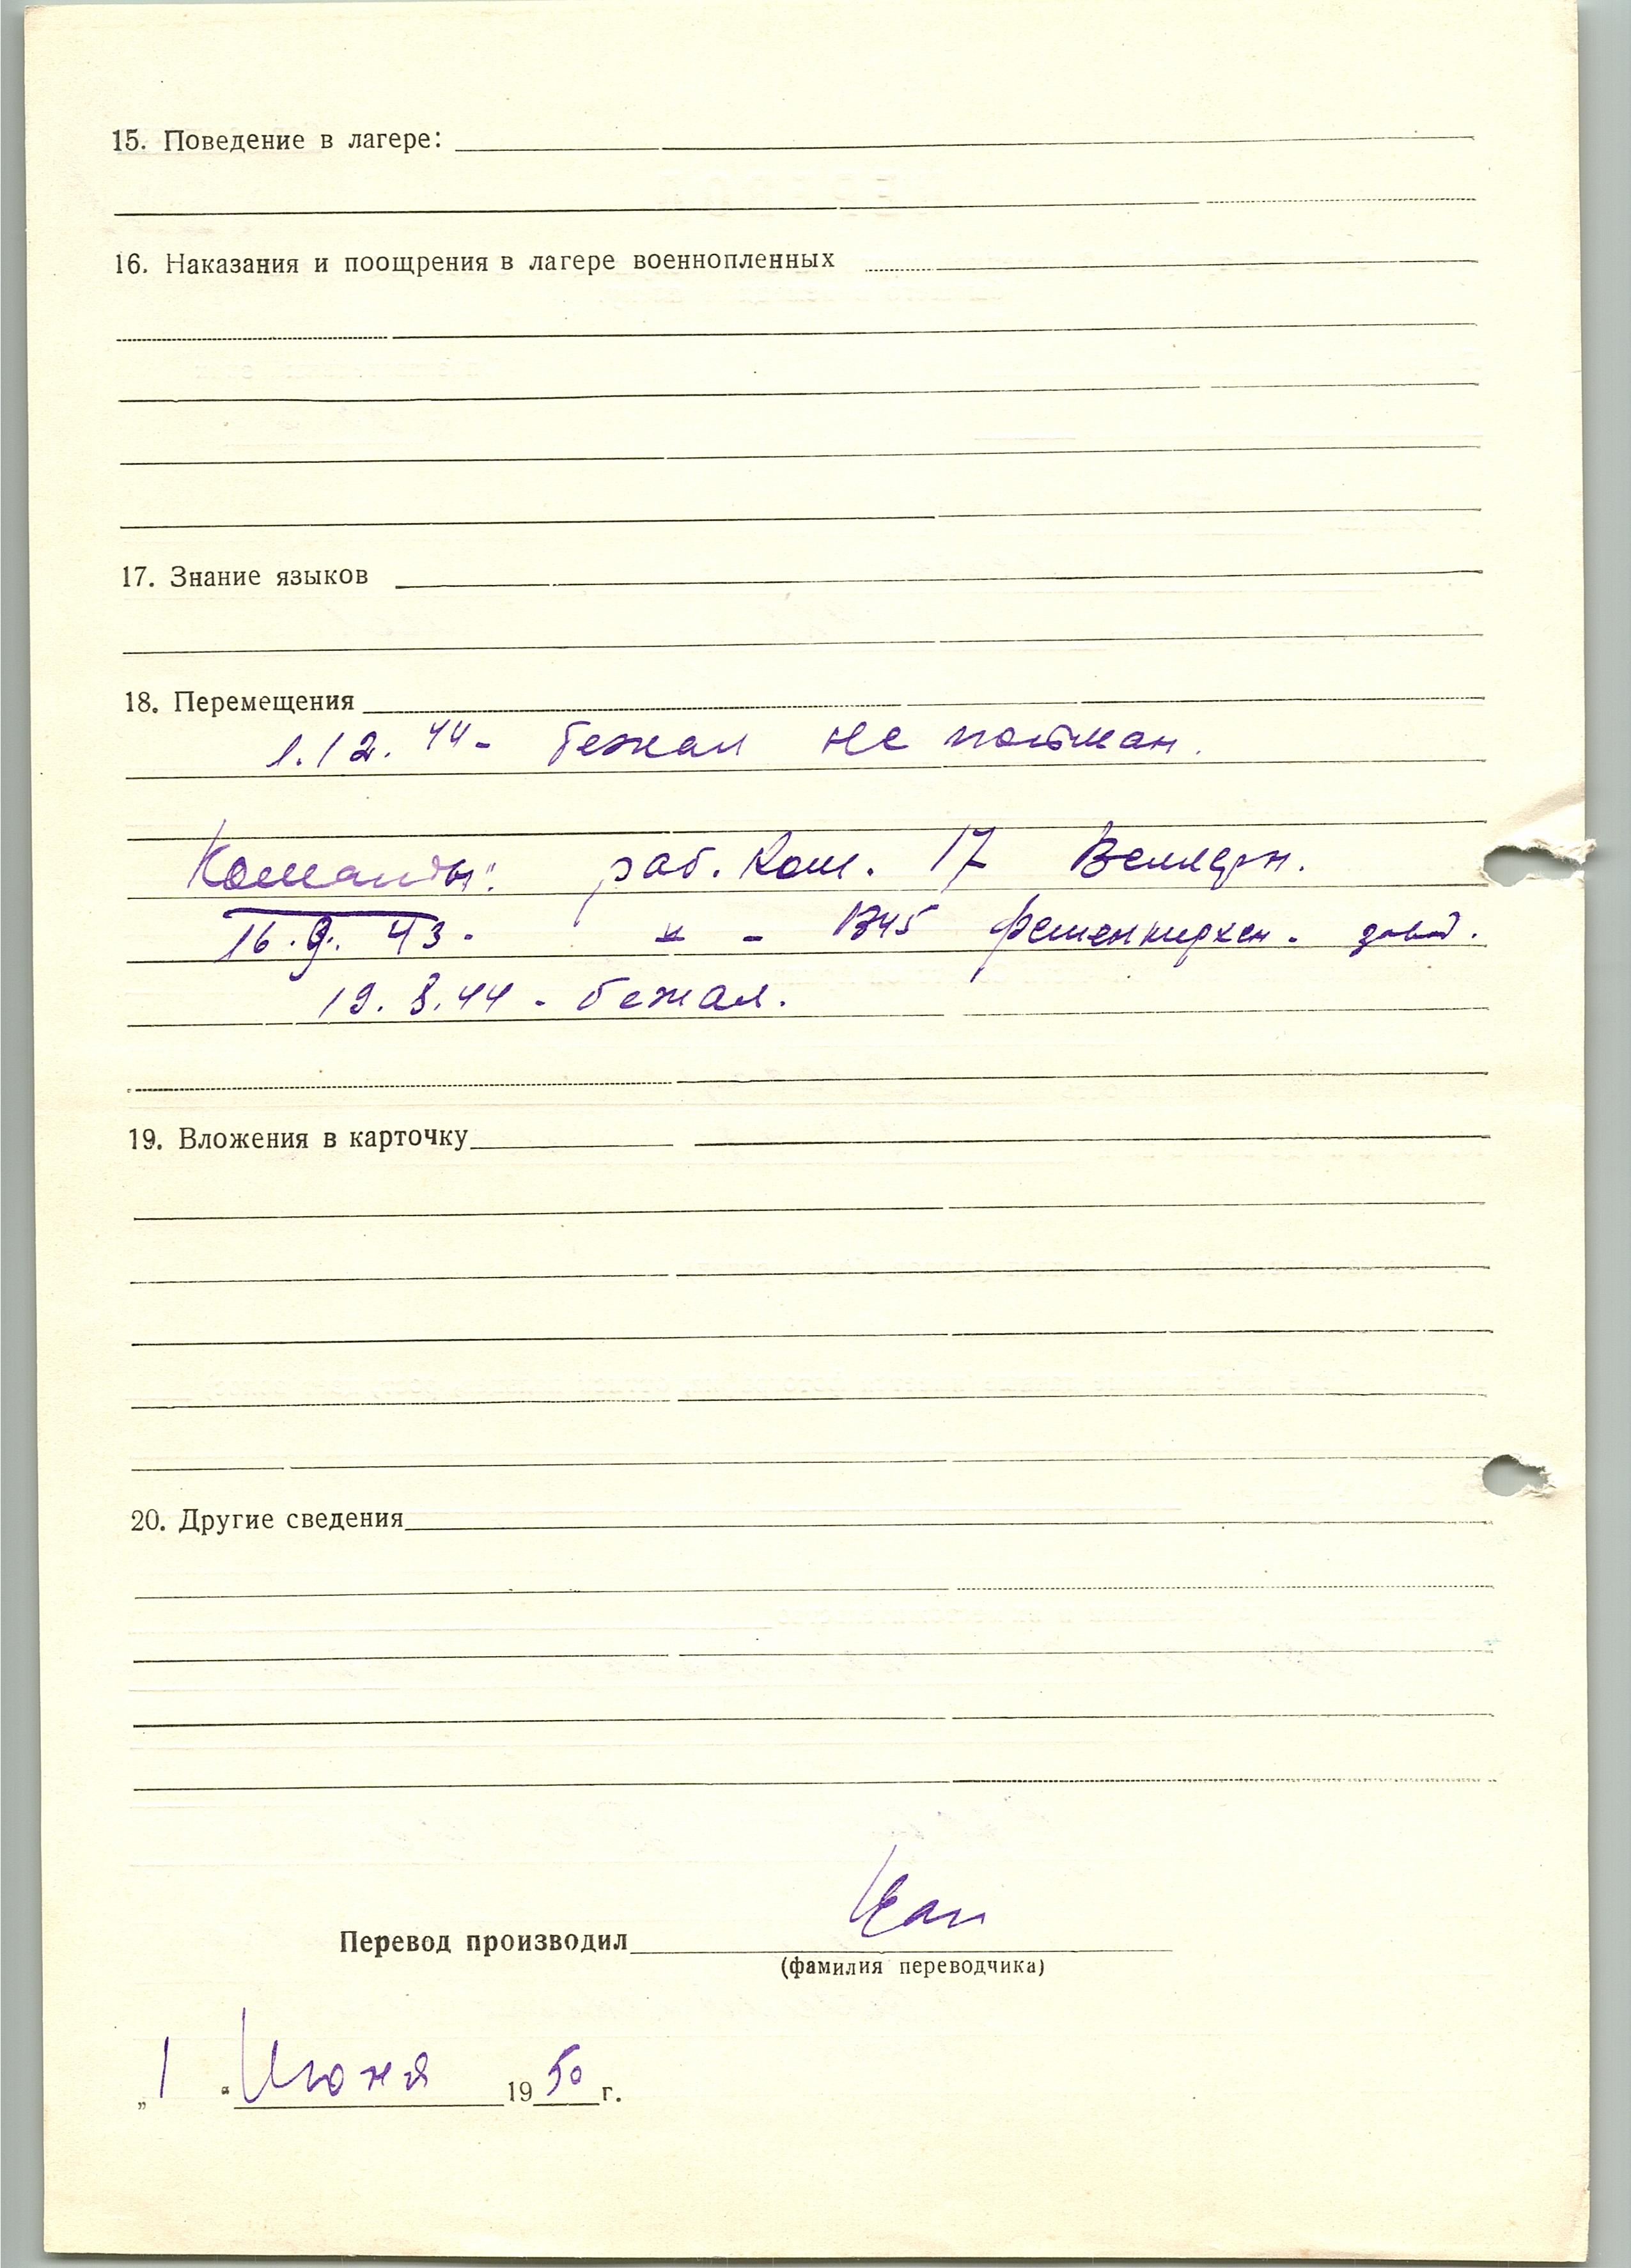 15. Поведение в лагере:
16. Наказания и поощрения в лагере военнопленных
17. Знание языков
18. Перемещения
1.12.44- бежал не пойман.
Команды: раб. Ком. 17
16.9.43. " - 1345
19.8.44 - бежал.
19. Вложения в карточку
20. Другие сведения
Перевод производил
(фамилия переводчика)
„1“ Июня 1950 г.